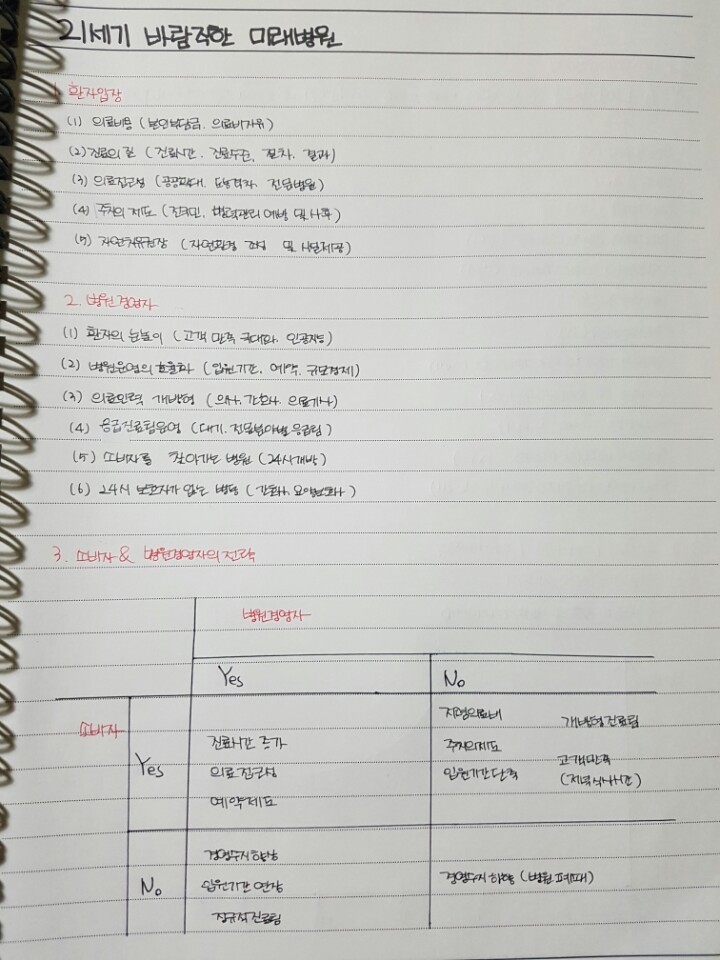 21세기 바람직한 미래병원
1. 환자입장
(1) 의료비용 (본인부담금, 의료비지원)
(2) 진료의 질 (진료시간, 진료수준, 절차, 결과)
(3) 의료접근성 (공공확대, 전문병원)
(4) 주치의 제도 (건강관리 예방 및 사후)
(5) 자연치유권장 (자연환경 및 시설제공)
2. 병원경영자
(1) 환자의 눈높이 (고객 만족 극대화, 인공지능)
(2) 병원운영의 효율화 (입원기간, 예약, 규모경제)
(3) 의료인력 개방형 (의사, 간호사, 의료기사)
(4) 응급진료팀운영 (대기, 전문분야별 응급팀)
(5) 소비자를 찾아가는 병원 (24시개방)
(6) 24시 보호자가 없는 병동 (간호사, 요양보호사)
3. 소비자 & 병원경영자의 전략
병원경영자
Yes No
소비자
Yes
진료시간 증가
의료 접근성
예약제도
지명의료비 개방형진료팀
주치의제도 고객만족
입원기간단축 (저녁식사시간)
No
경영수지 향상
입원기간 연장
정규직진료팀
경영수지 하향 (병원 폐쇄)